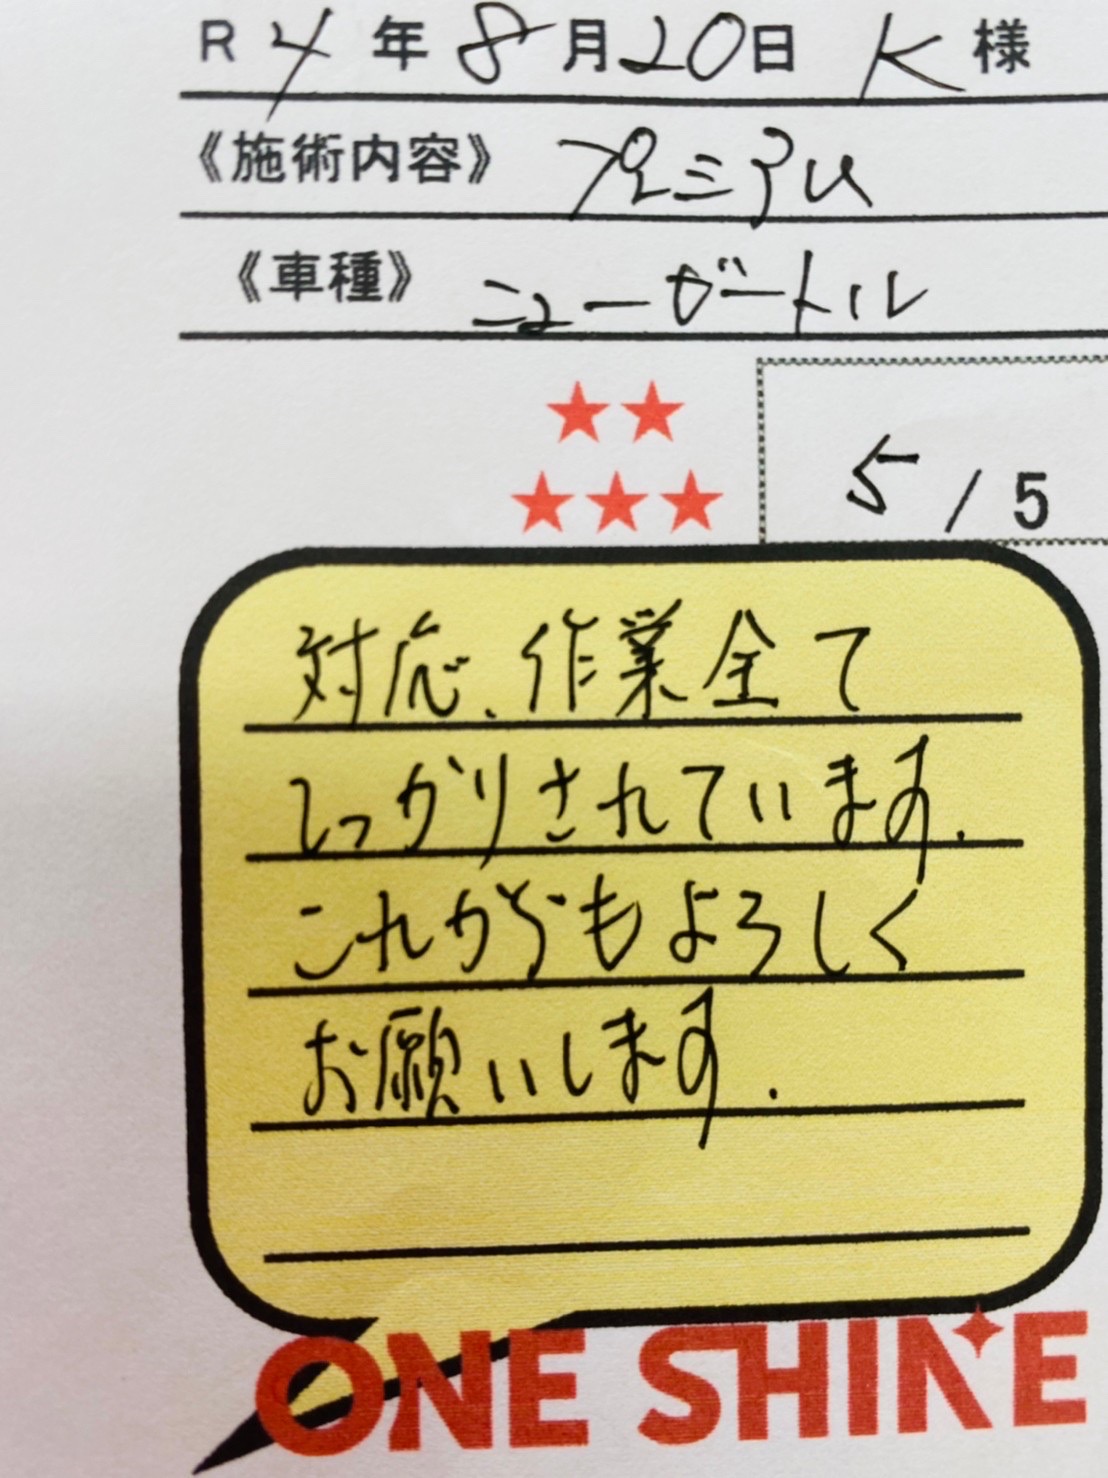 R 4 年 8 月 20 日 K 様
《施術内容》 プレミアム
《車種》 ニュービートル
★★
★★★
5 / 5
対応、作業全て
しっかりされています.
これからもよろしく
お願いします.
ONE SHINE